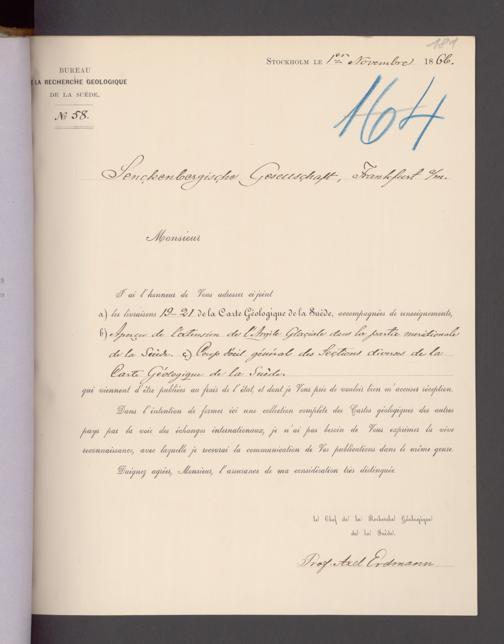 181
BUREAU
DE LA RECHERCHE GÉOLOGIQUE
DE LA SUÈDE.
№ 58.
STOCKHOLM LE 1er Novembre 1866.
164
Senckenbergische Gesellschaft, Frankfurt a/m.
Monsieur
J'ai l'honneur de Vous adresser ci-joint
a) les livraisons 19-21 de la Carte Géologique de la Suède, accompagnées de renseignements,
b) Aperçu de l'extension de l'Argile Glaciale dans la partie méridionale
de la Suède. c) Coup d'œil général des Sections diverses de la
Carte Géologique de la Suède.
qui viennent d'être publiées au frais de l'état, et dont je Vous prie de vouloir bien m'accuser réception.
Dans l'intention de former ici une collection complète des Cartes géologiques des autres
pays par la voie des échanges internationaux, je n'ai pas besoin de Vous exprimer la vive
reconnaissance, avec laquelle je recevrai la communication de Vos publications dans le même genre.
Daignez agréer, Monsieur, l'assurance de ma considération très distinguée.
le Chef de la Recherche Géologique
de la Suède.
Prof. Axel Erdmann